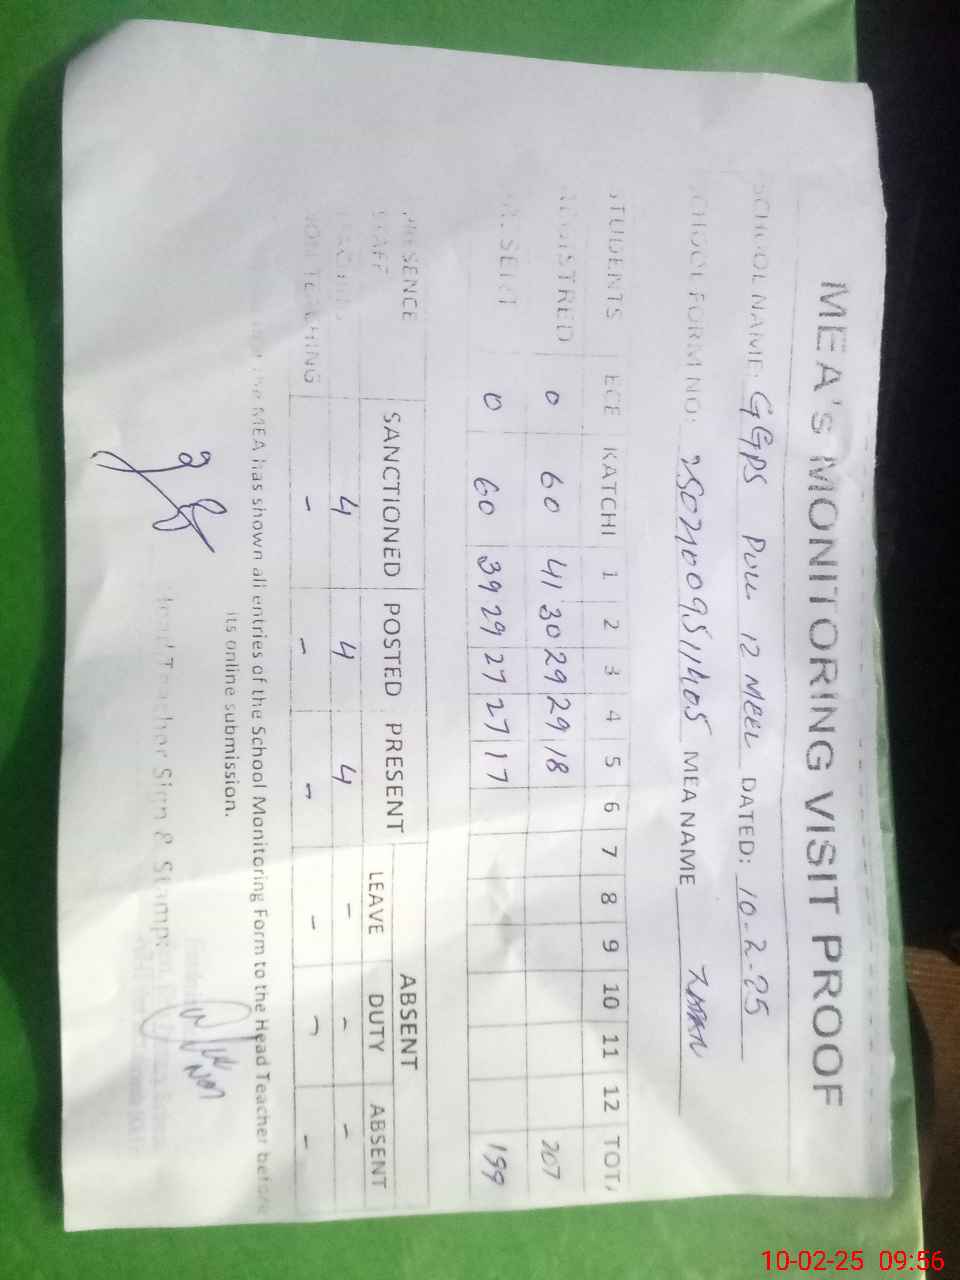 MEA's MONITORING VISIT PROOF
SCHOOL NAME: GGPS Pull 12 MEEL DATED: 10-2-25
SCHOOL FORM NO: MEA NAME
STUDENTS ECE KATCHI 1 2 3 4 5 6 7 8 9 10 11 12 TOTA
REGISTRED 0 60 41 30 29 29 18 207
PRESENT 0 60 39 29 27 27 17 199
PRESENCE SANCTIONED POSTED PRESENT ABSENT
STAFF LEAVE DUTY ABSENT
TEACHING 4 4 4 - - -
NON TEACHING - - - - - -
the MEA has shown all entries of the School Monitoring Form to the Head Teacher before
its online submission.
Head Teacher Sign & Stamp:
10-02-25 09:56